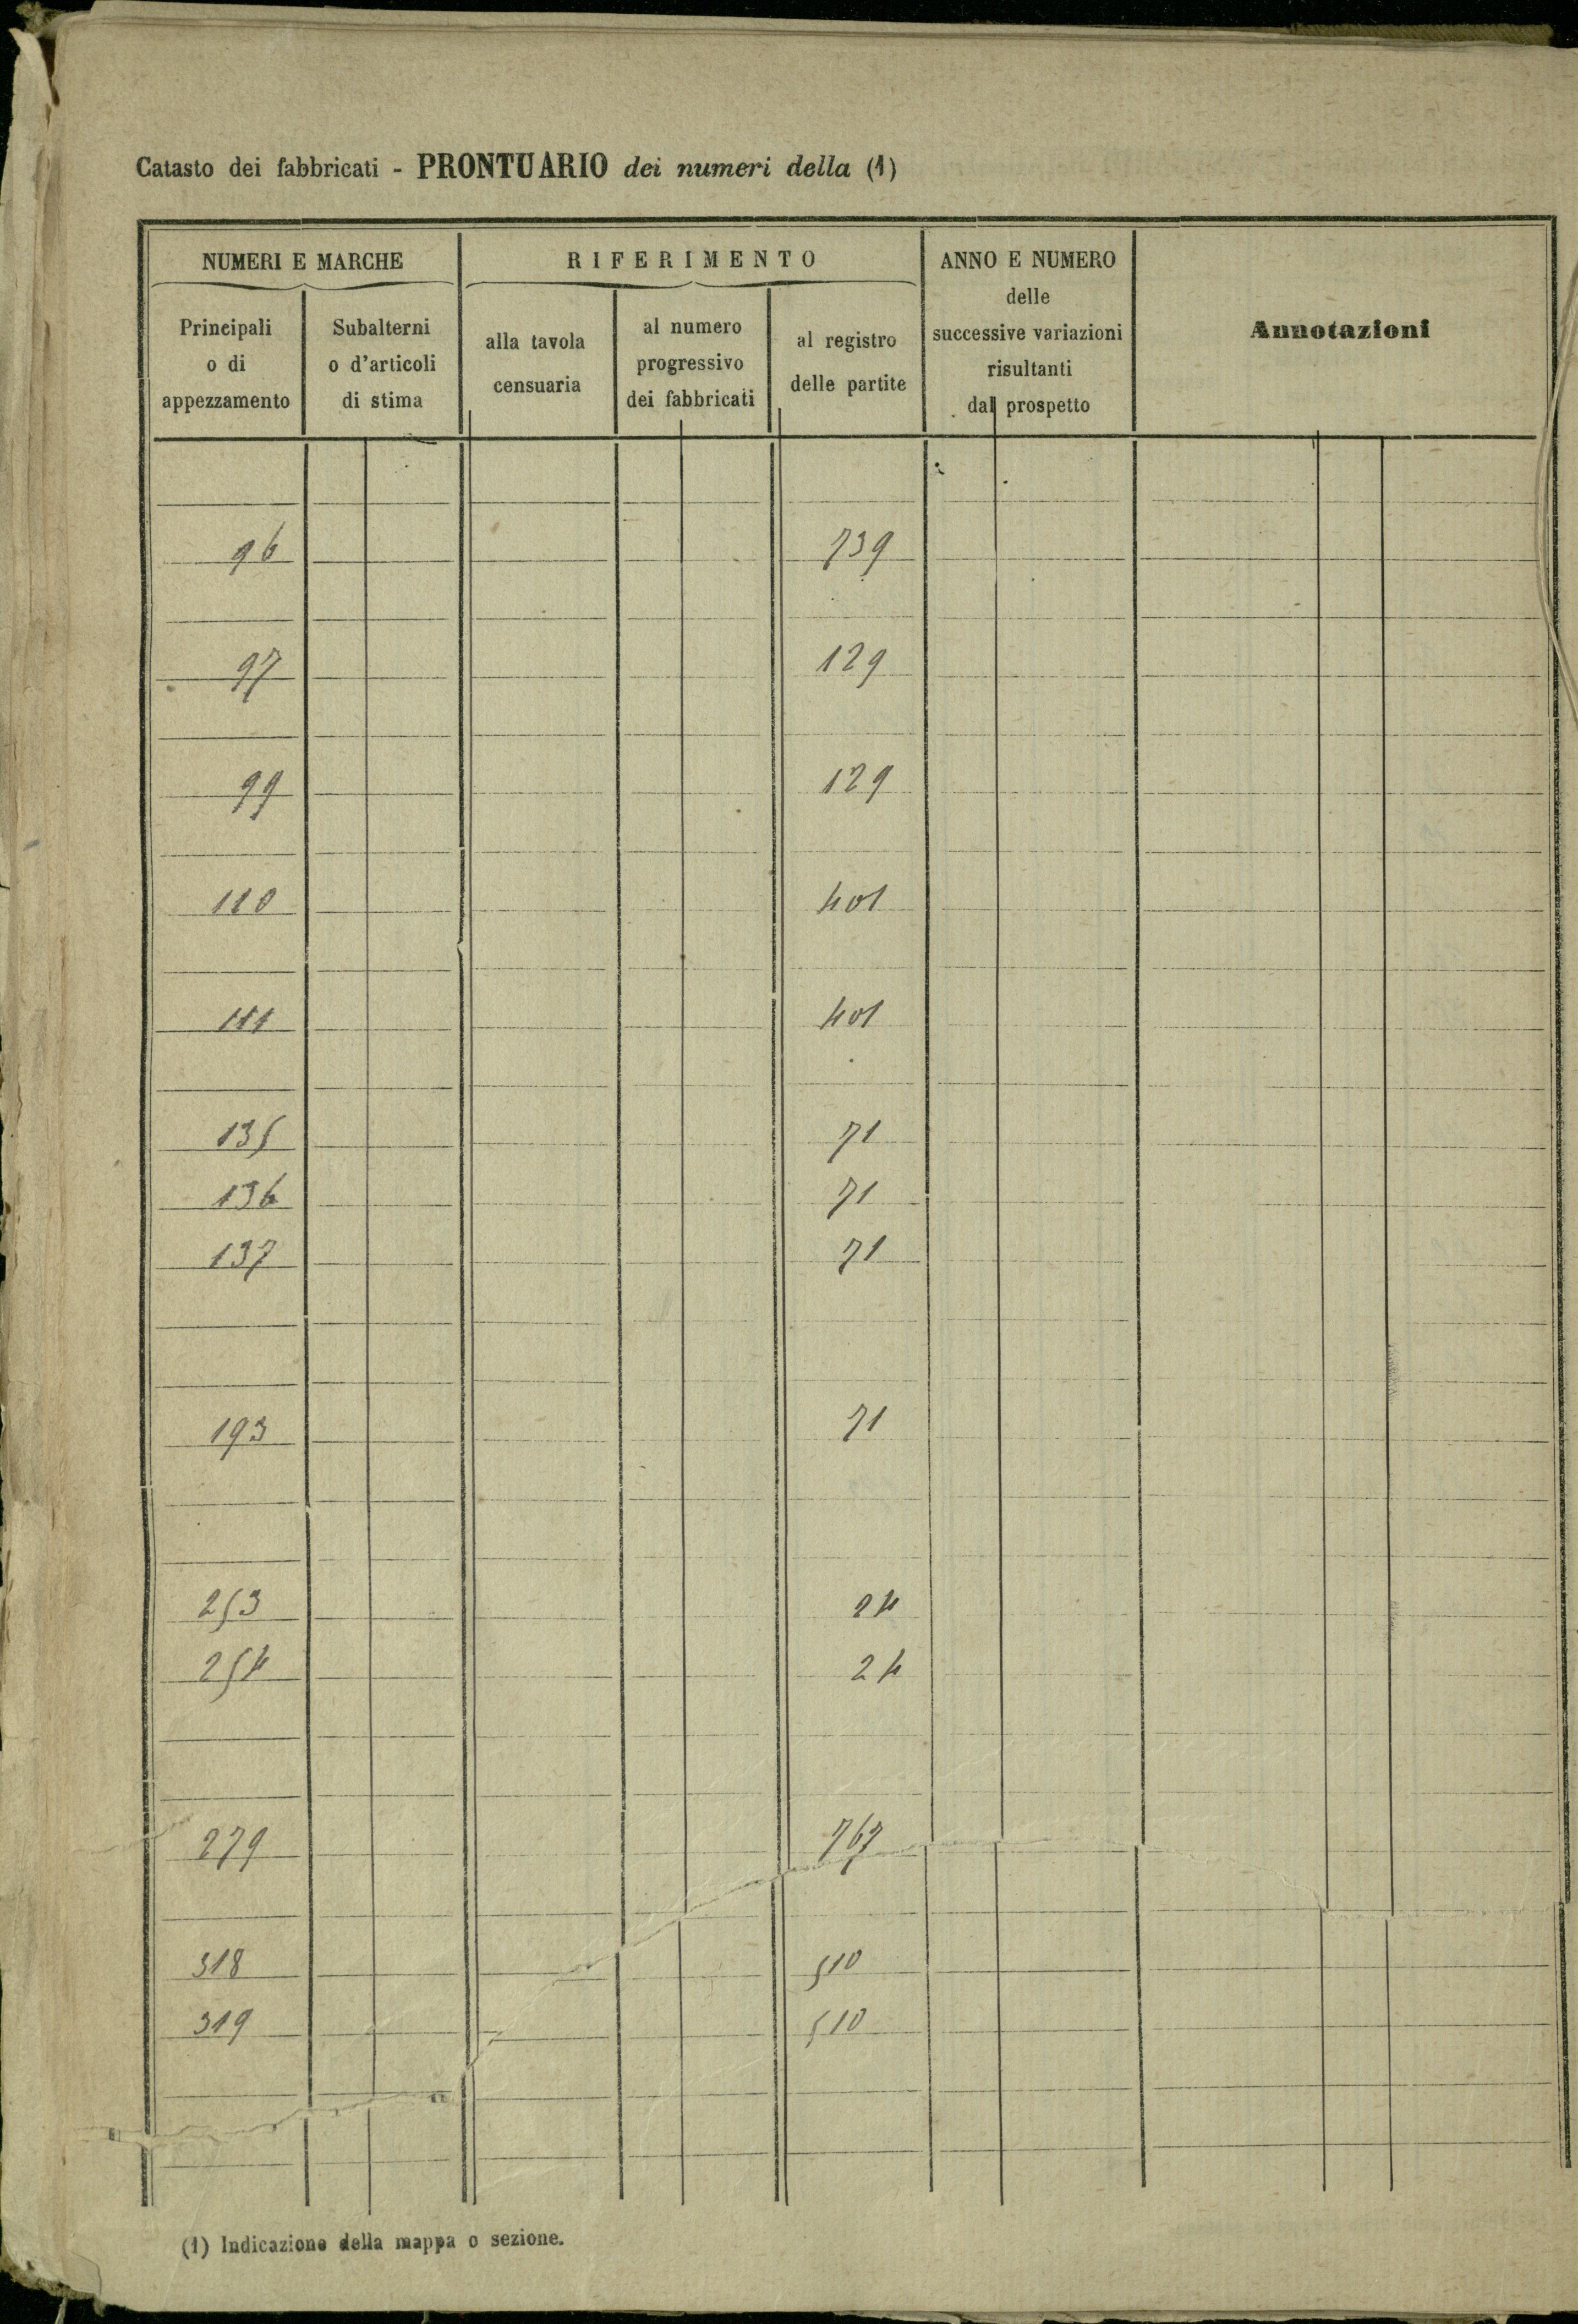 Catasto dei fabbricati - PRONTUARIO dei numeri della (1)
NUMERI E MARCHE
RIFERIMENTO
ANNO E NUMERO
delle
successive variazioni
risultanti
dal prospetto
Annotazioni
Principali
o di
appezzamento
Subalterni
o d'articoli
di stima
alla tavola
censuaria
al numero
progressivo
dei fabbricati
al registro
delle partite
96 739
97 129
99 129
110 401
111 401
135 71
136 71
137 71
193 71
253 24
254 24
279 767
318 510
319 510
(1) Indicazione della mappa o sezione.